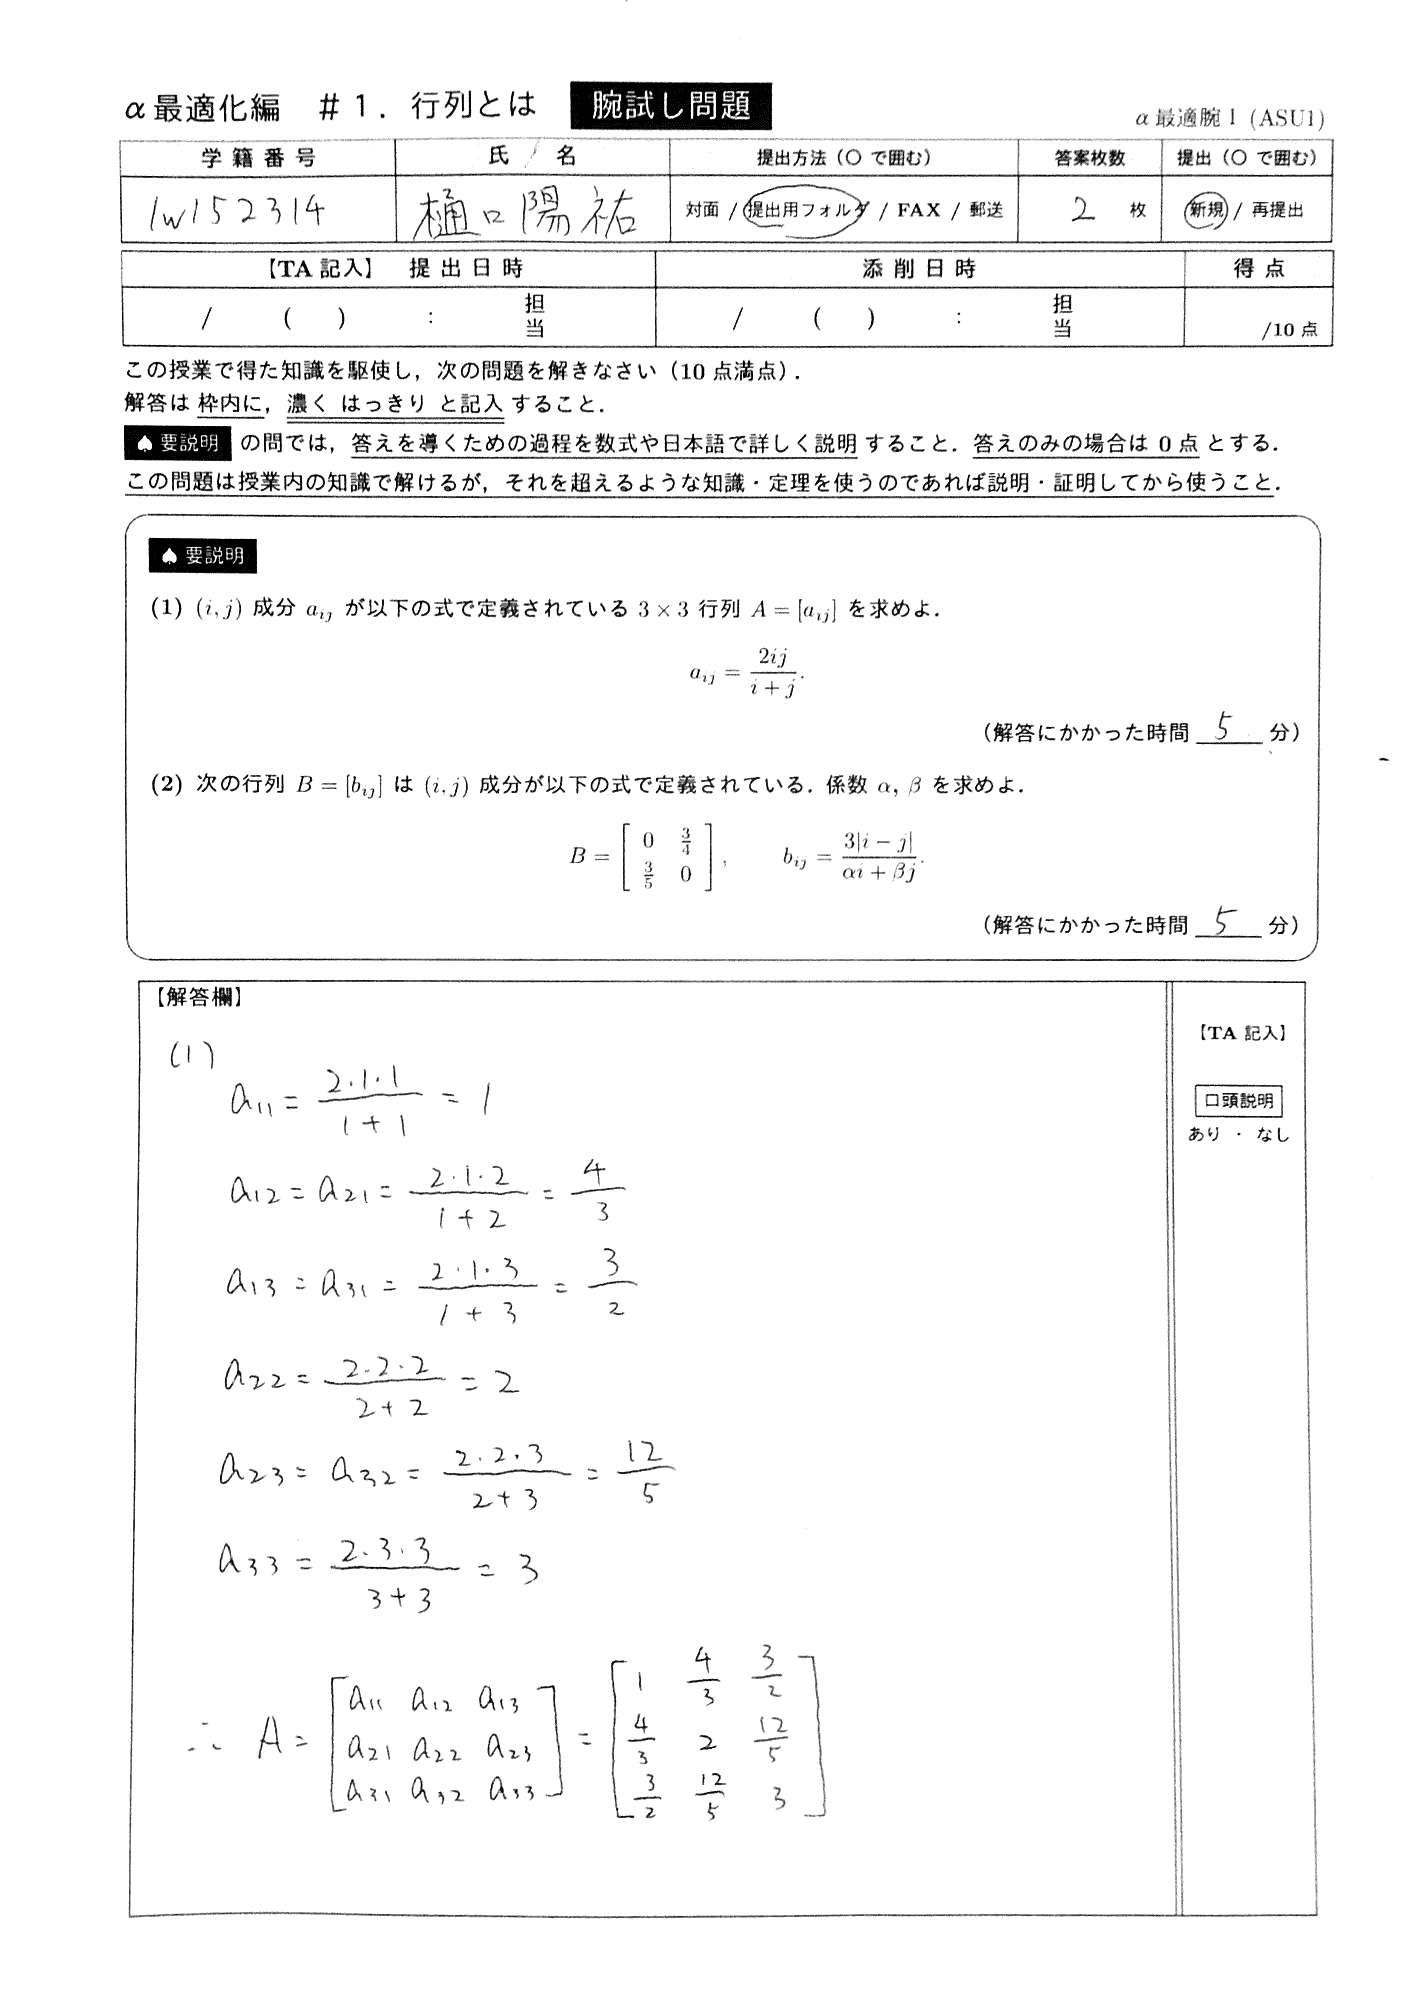 α最適化編 #1. 行列とは 腕試し問題
α最適腕1 (ASU1)
学籍番号 氏名 提出方法(○で囲む) 答案枚数 提出(○で囲む)
1w152314 樋口陽祐 対面 / 提出用フォルダ / FAX / 郵送 2 枚 新規 / 再提出
【TA記入】 提出日時 添削日時 得点
/ ( ) : 担当 / ( ) : 担当 /10点
この授業で得た知識を駆使し,次の問題を解きなさい(10点満点).
解答は 枠内に,濃く はっきり と記入 すること.
♠要説明 の問では,答えを導くための過程を数式や日本語で詳しく説明 すること.答えのみの場合は 0点 とする.
この問題は授業内の知識で解けるが,それを超えるような知識・定理を使うのであれば説明・証明してから使うこと.
♠要説明
(1) (i, j) 成分 a_{ij} が以下の式で定義されている 3 × 3 行列 A = [a_{ij}] を求めよ.
a_{ij} = \frac{2ij}{i + j}.
(解答にかかった時間 5 分)
(2) 次の行列 B = [b_{ij}] は (i, j) 成分が以下の式で定義されている.係数 α, β を求めよ.
B = \begin{bmatrix} 0 & \frac{3}{4} \\ \frac{3}{5} & 0 \end{bmatrix}, b_{ij} = \frac{3|i - j|}{αi + βj}.
(解答にかかった時間 5 分)
【解答欄】
【TA記入】
口頭説明
あり ・ なし
(1)
a_{11} = \frac{2·1·1}{1+1} = 1
a_{12} = a_{21} = \frac{2·1·2}{1+2} = \frac{4}{3}
a_{13} = a_{31} = \frac{2·1·3}{1+3} = \frac{3}{2}
a_{22} = \frac{2·2·2}{2+2} = 2
a_{23} = a_{32} = \frac{2·2·3}{2+3} = \frac{12}{5}
a_{33} = \frac{2·3·3}{3+3} = 3
∴ A = \begin{bmatrix} a_{11} & a_{12} & a_{13} \\ a_{21} & a_{22} & a_{23} \\ a_{31} & a_{32} & a_{33} \end{bmatrix} = \begin{bmatrix} 1 & \frac{4}{3} & \frac{3}{2} \\ \frac{4}{3} & 2 & \frac{12}{5} \\ \frac{3}{2} & \frac{12}{5} & 3 \end{bmatrix}